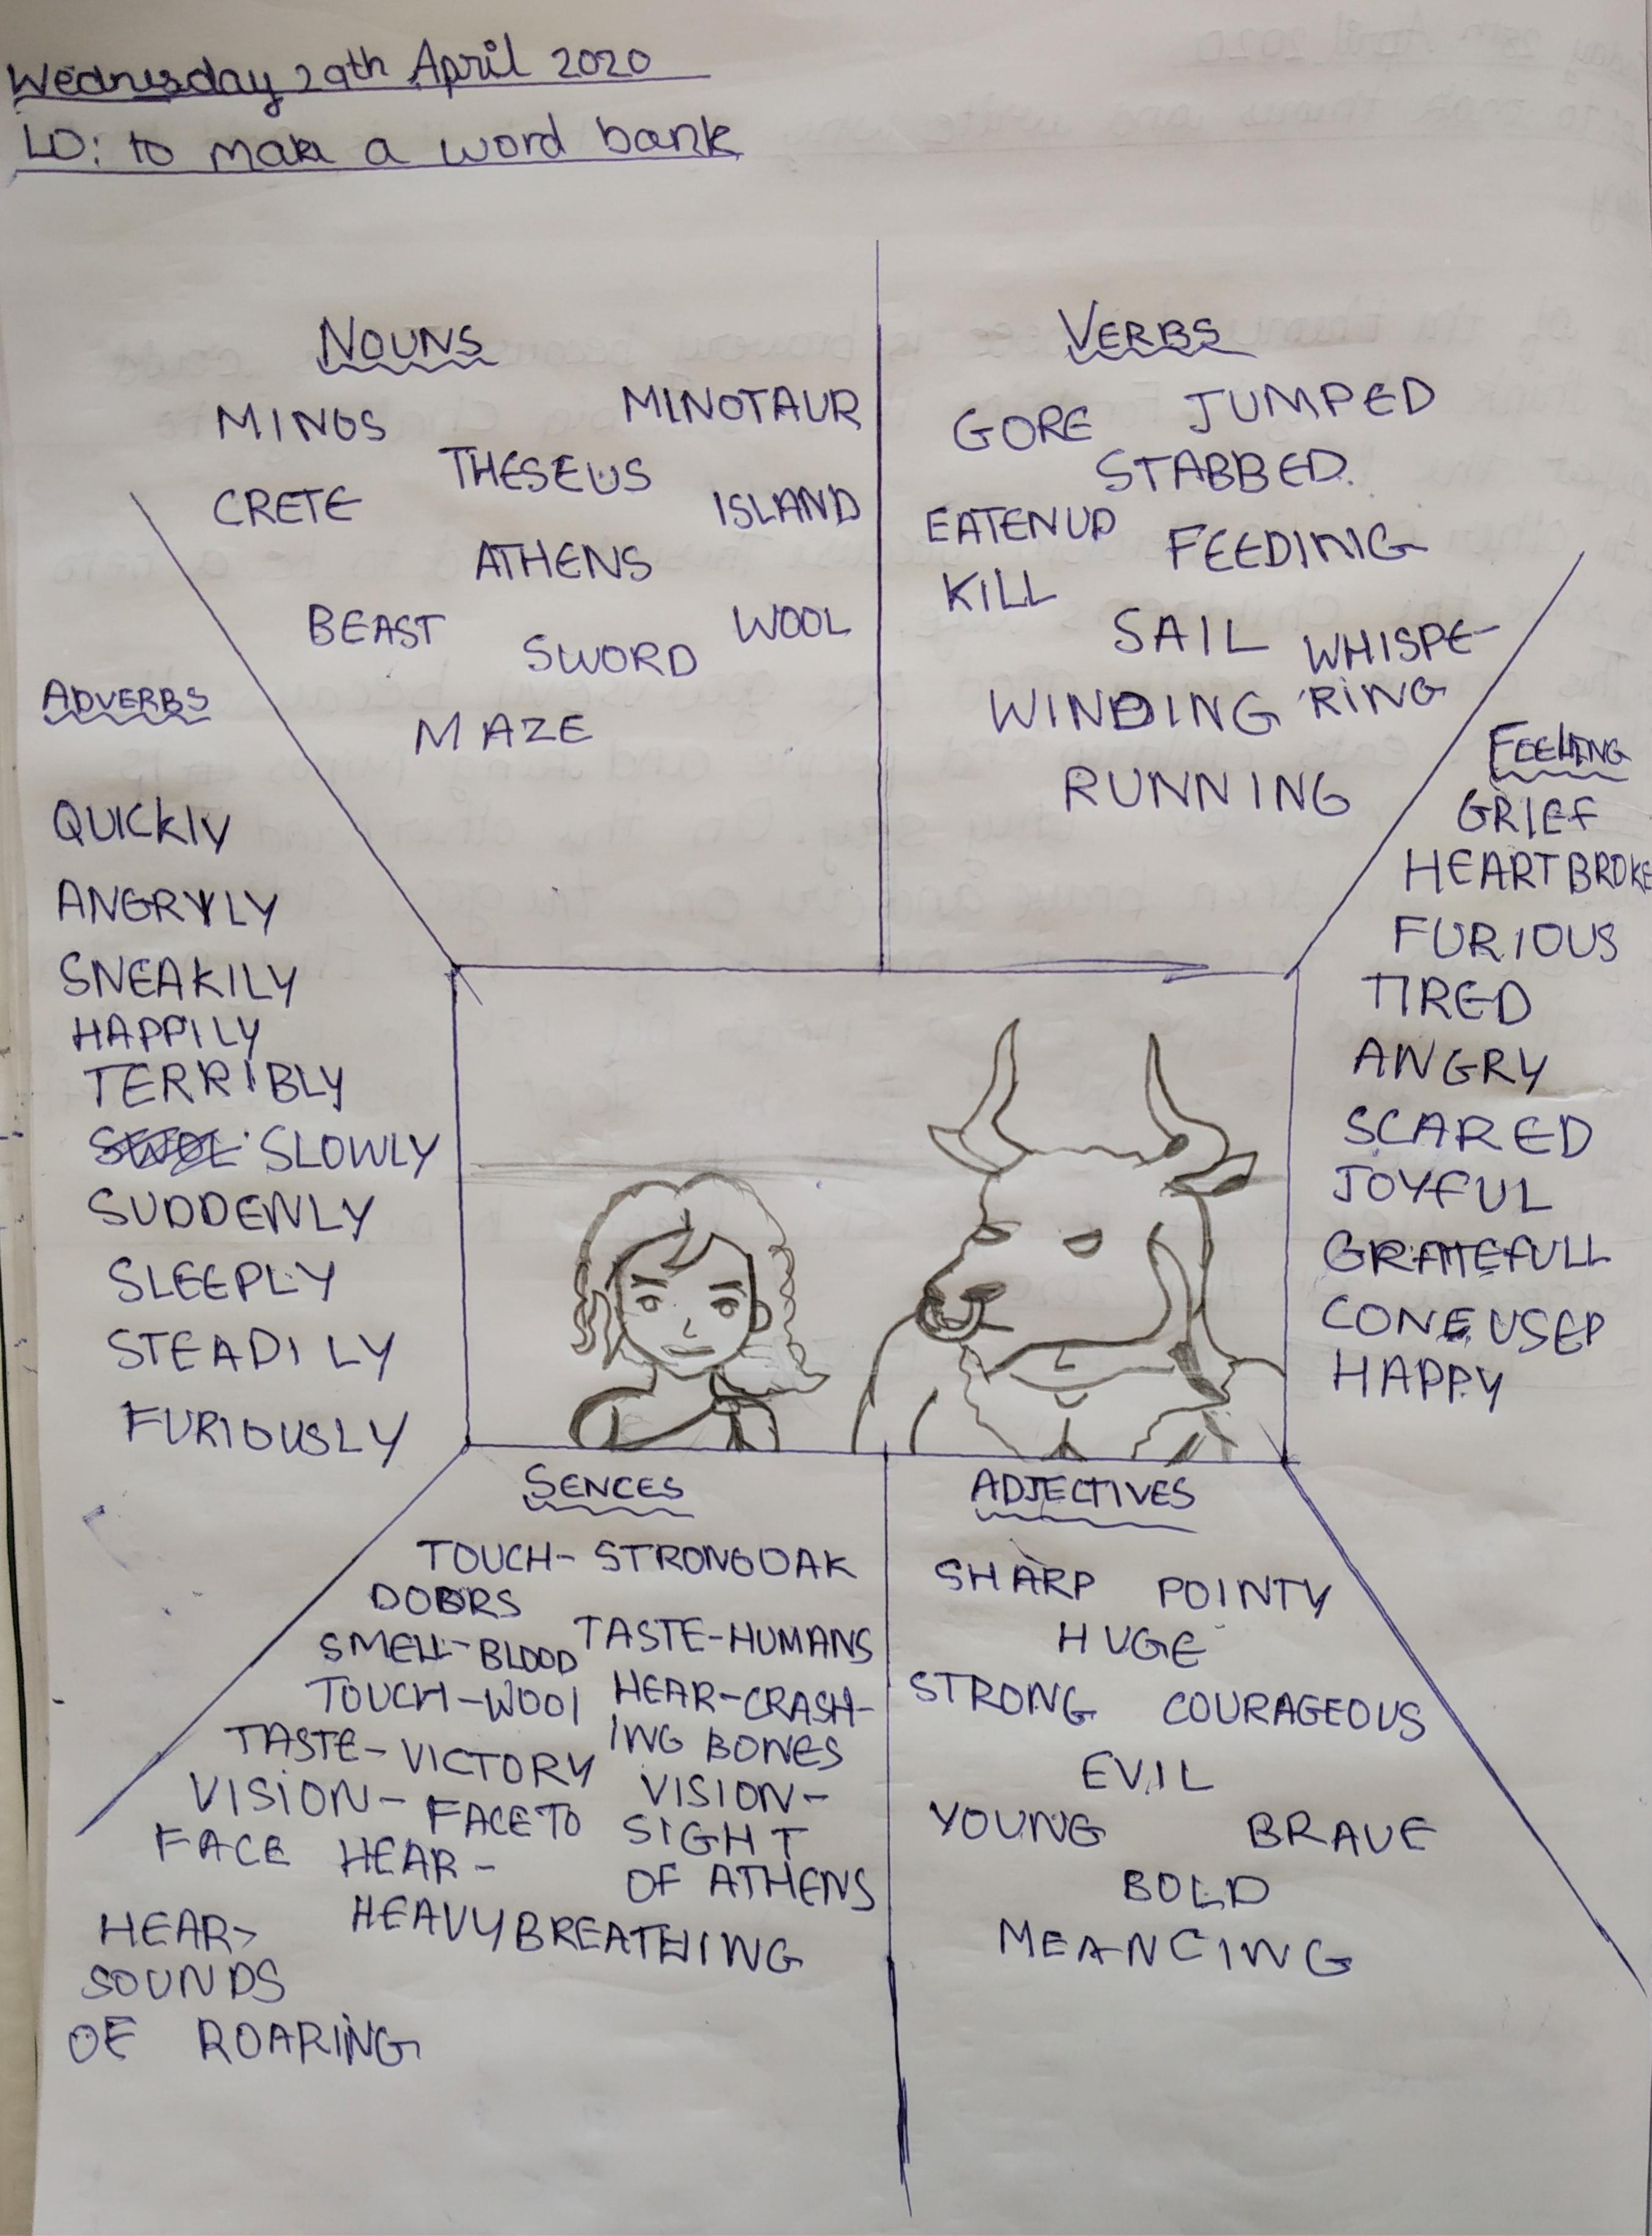 Wednesday 29th April 2020
LO: to make a word bank
NOUNS
MINOS MINOTAUR
THESEUS
CRETE ISLAND
ATHENS
BEAST SWORD WOOL
MAZE
VERBS
GORE JUMPED
STABBED.
EATENUP FEEDING
KILL
SAIL WHISPE-
WINDING RING
RUNNING
ADVERBS
QUICKLY
ANGRYLY
SNEAKILY
HAPPILY
TERRIBLY
SLOWLY
SUDDENLY
SLEEPLY
STEADILY
FURIOUSLY
FEELING
GRIEF
HEARTBROKE
FURIOUS
TIRED
ANGRY
SCARED
JOYFUL
GRATEFULL
CONFUSED
HAPPY
SENCES
TOUCH- STRONG OAK
DOORS
SMELL-BLOOD
TASTE-HUMANS
TOUCH-WOOl
HEAR-CRASH-
ING BONES
TASTE-VICTORY
VISION- FACE TO
FACE
VISION-
SIGHT
OF ATHENS
HEAR-
HEAVY BREATHING
HEAR-
SOUNDS
OF ROARING
ADJECTIVES
SHARP POINTY
HUGE
STRONG COURAGEOUS
EVIL
YOUNG BRAVE
BOLD
MEANCING